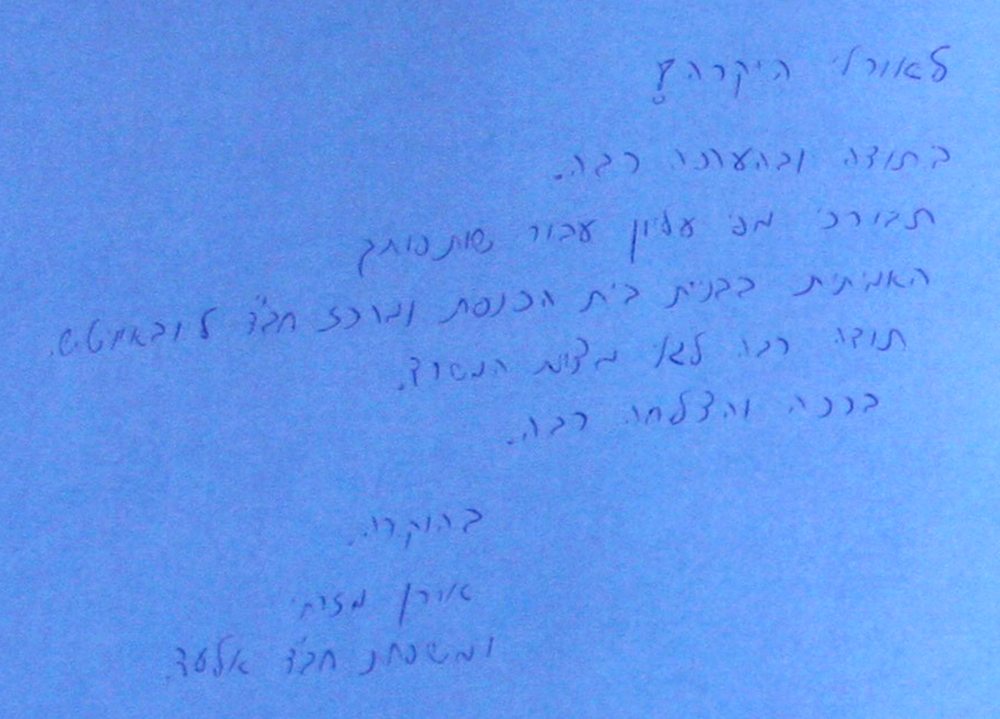 לאורלי היקרה!
בתודה ובהערכה רבה.
תבורכי מפי עליון עבור שותפותך
האמיתית בבניית בית הכנסת ומרכז חב"ד ליובאוויטש.
תודה רבה לגבי מצוות המשרד.
ברכה והצלחה רבה.
בהוקרה.
אורן מזרחי
ומשפחת חב"ד אלעד.